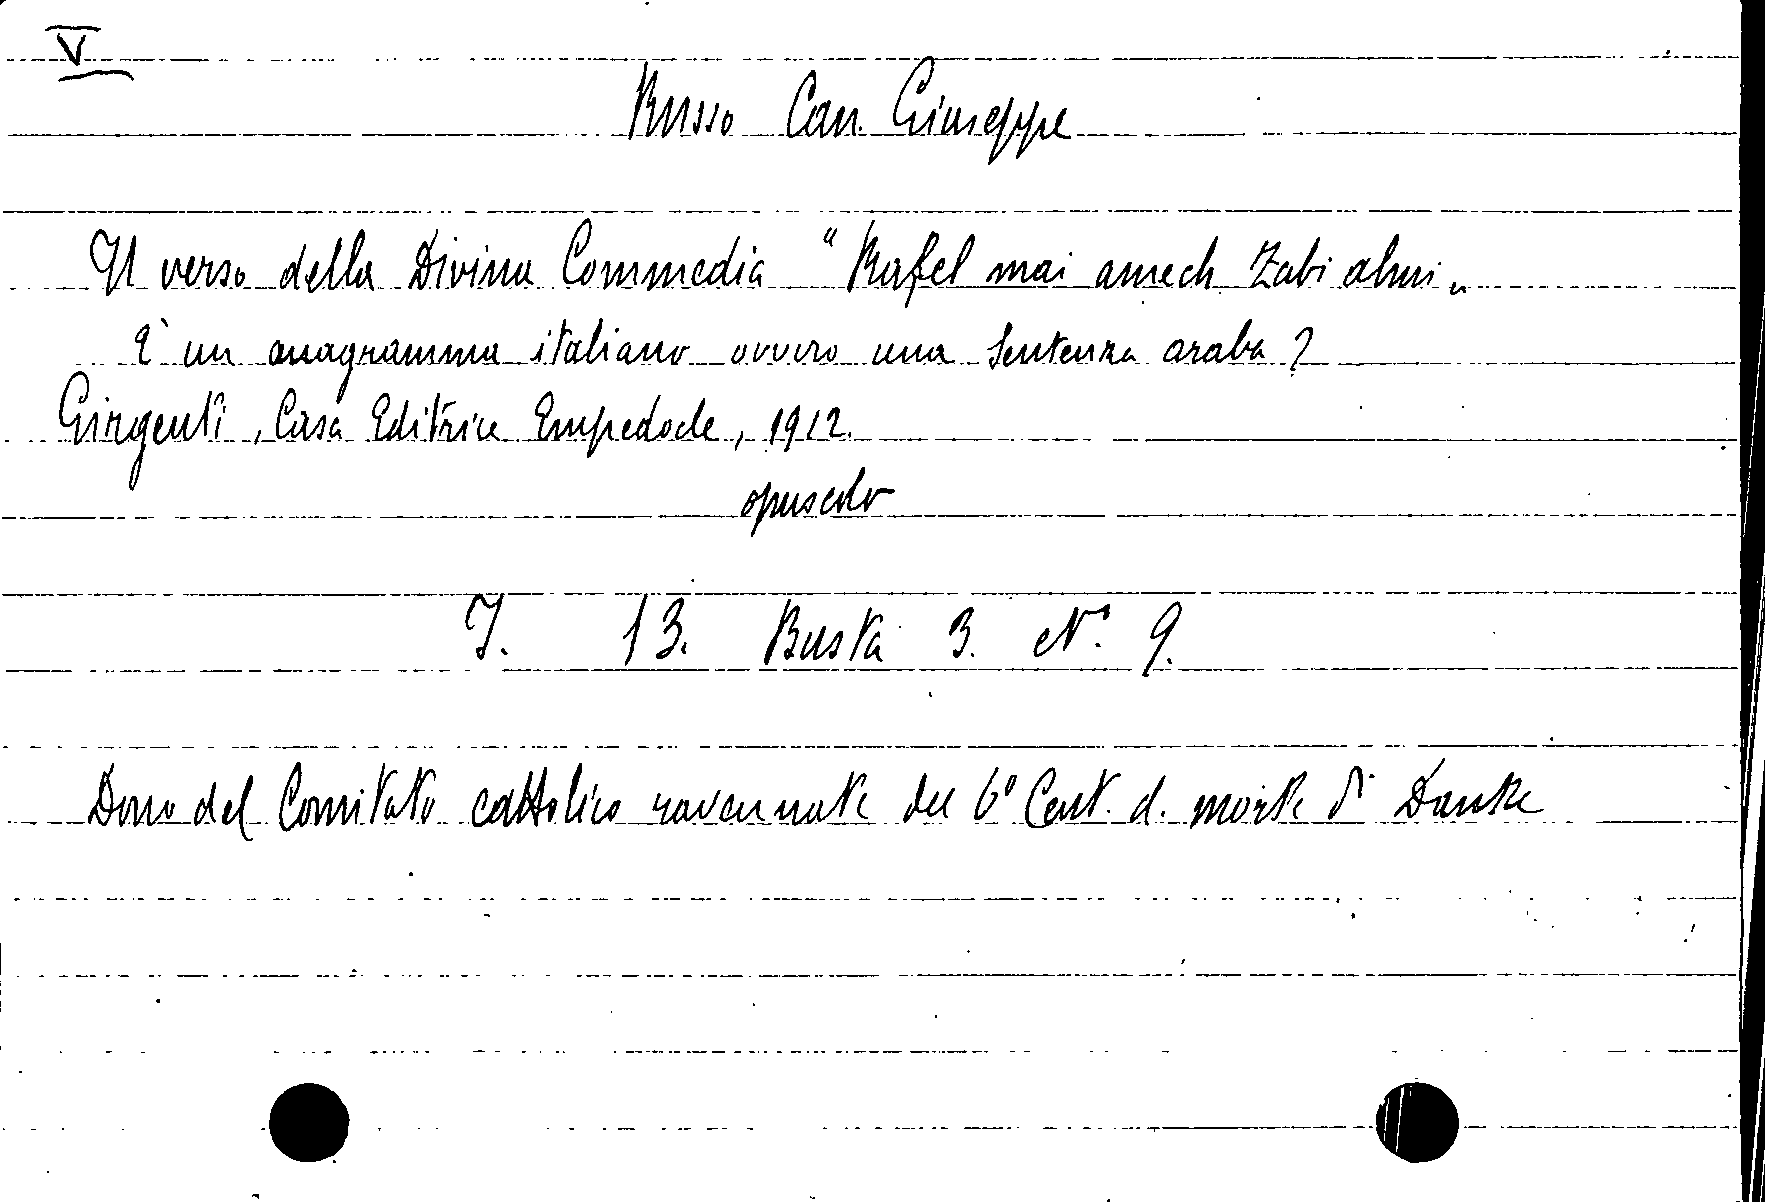 V
Russo Can. Giuseppe
Il verso della Divina Commedia "Rafel mai amech Zabi almi„
È un anagramma italiano ovvero una Sentenza araba?
Girgenti, Casa Editrice Empedocle, 1912.
opuscolo
I. 13. Busta 3. N° 9.
Dono del Comitato cattolico ravennate del 6° Cent. d. morte di Dante